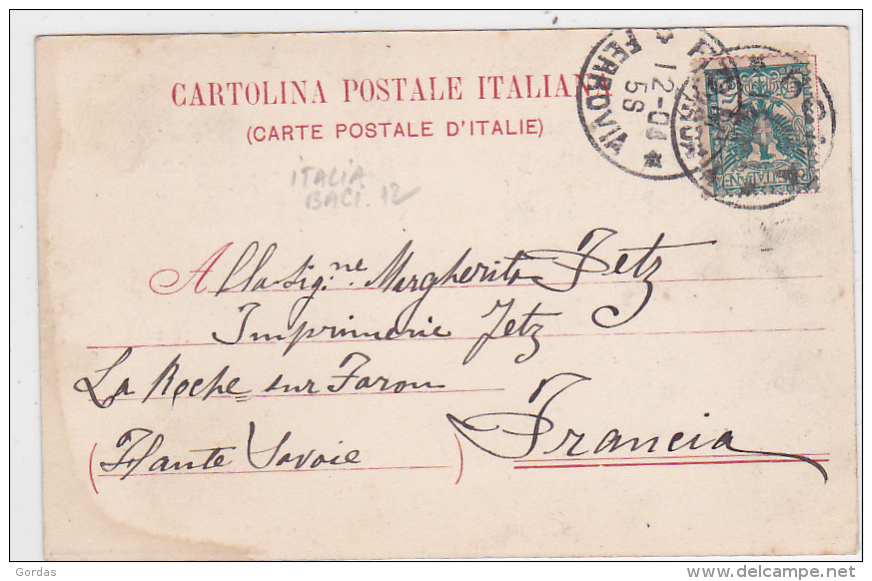 CARTOLINA POSTALE ITALIANA
(CARTE POSTALE D'ITALIE)
FERROVIA
12-04
5S
ITALIA
BACI. 12
Alla Sig.ne Margherita Jetz
Imprimerie Jetz
La Roche sur Faron
(Haute Savoie)
Francia
Gordas
delcampe.net